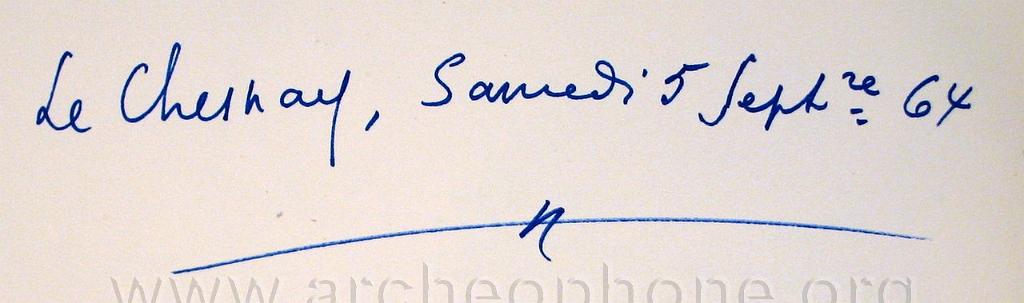 Le Chesnay, Samedi 5 Septre 64
www.archeophone.org